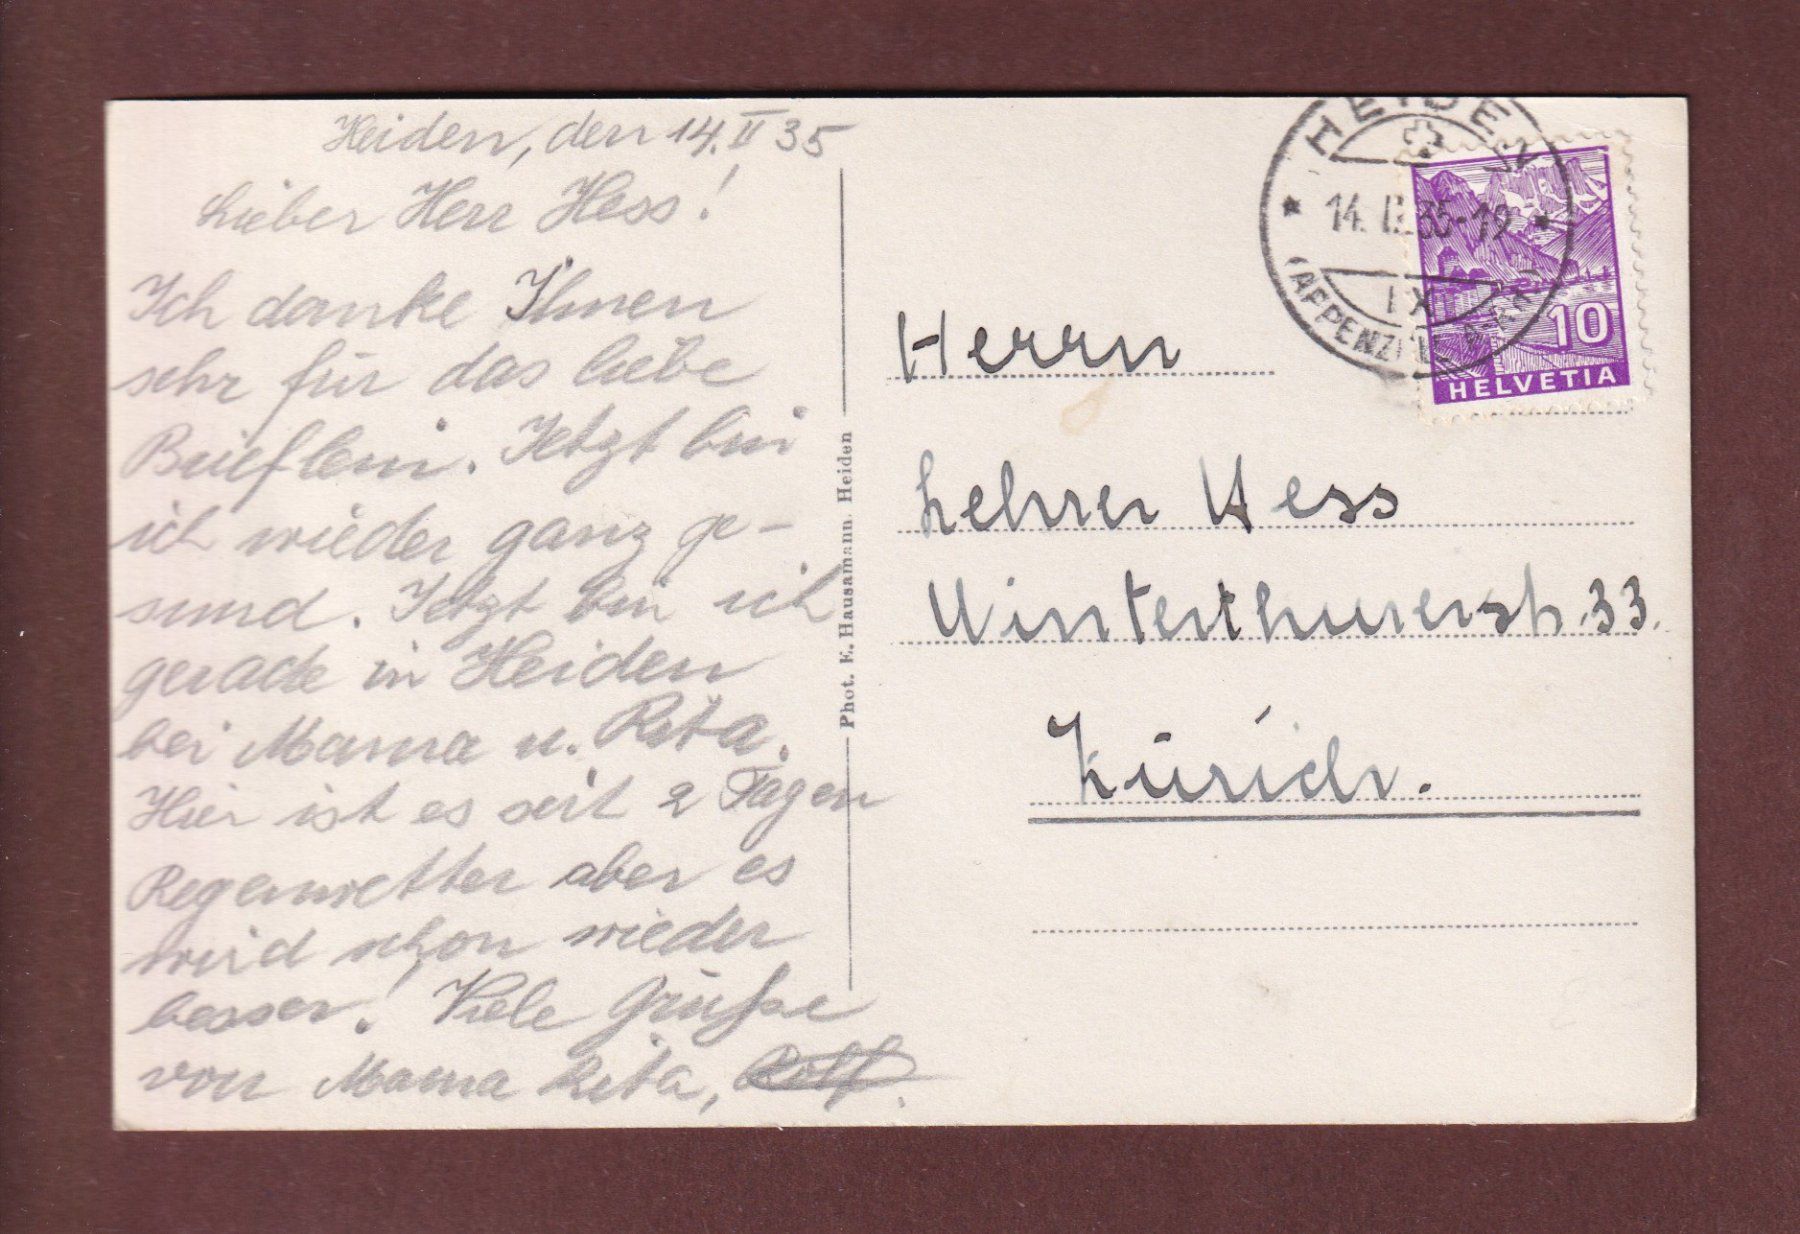 Heiden, den 14. II 35
Lieber Herr Hess!
Ich danke Ihnen
sehr für das liebe
Brieflein. Jetzt bin
ich wieder ganz ge-
sund. Jetzt bin ich
gerade in Heiden
bei Mama u. Rita.
Hier ist es seit 2 Tagen
Regenwetter aber es
wird schon wieder
besser! Viele Grüsse
von Mama Rita, Rolf.
Phot. E. Hausamann, Heiden
HEIDEN
14. II. 35-19
(APPENZELL A.RH.)
10
HELVETIA
Herrn
Lehrer Hess
Winterthurerstr. 33.
Zürich.